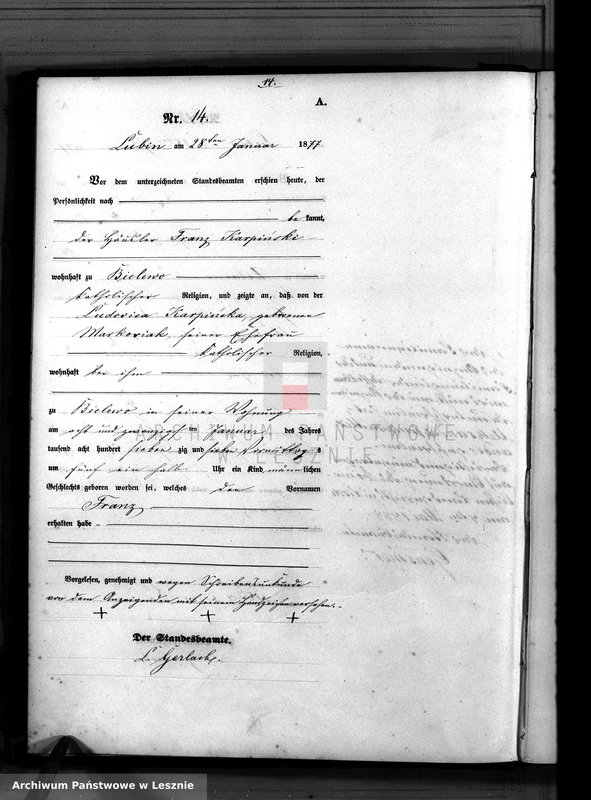 14.
A.
Nr. 14.
Lubin am 28ten Januar 1877.
Vor dem unterzeichneten Standesbeamten erschien heute, der
Persönlichkeit nach
be kannt,
der Häusler Franz Karpiński
wohnhaft zu Bielewo
katholischer Religion, und zeigte an, daß von der
Ludovica Karpińska, geborenen
Markowiak, seiner Ehefrau
katholischer Religion,
wohnhaft bei ihm
zu Bielewo in seiner Wohnung
am acht und zwanzigsten Januar des Jahres
tausend acht hundert sieben zig und sieben Vormittags
um fünf ein halb Uhr ein Kind männlichen
Geschlechts geboren worden sei, welches den Vornamen
Franz
erhalten habe
Vorgelesen, genehmigt und wegen Schreibensunkunde
von dem Anzeigenden mit seinem Handzeichen versehen.
+ + +
Der Standesbeamte.
Gerlach.
ARCHIWUM PAŃSTWOWE
W LESZNIE
Archiwum Państwowe w Lesznie